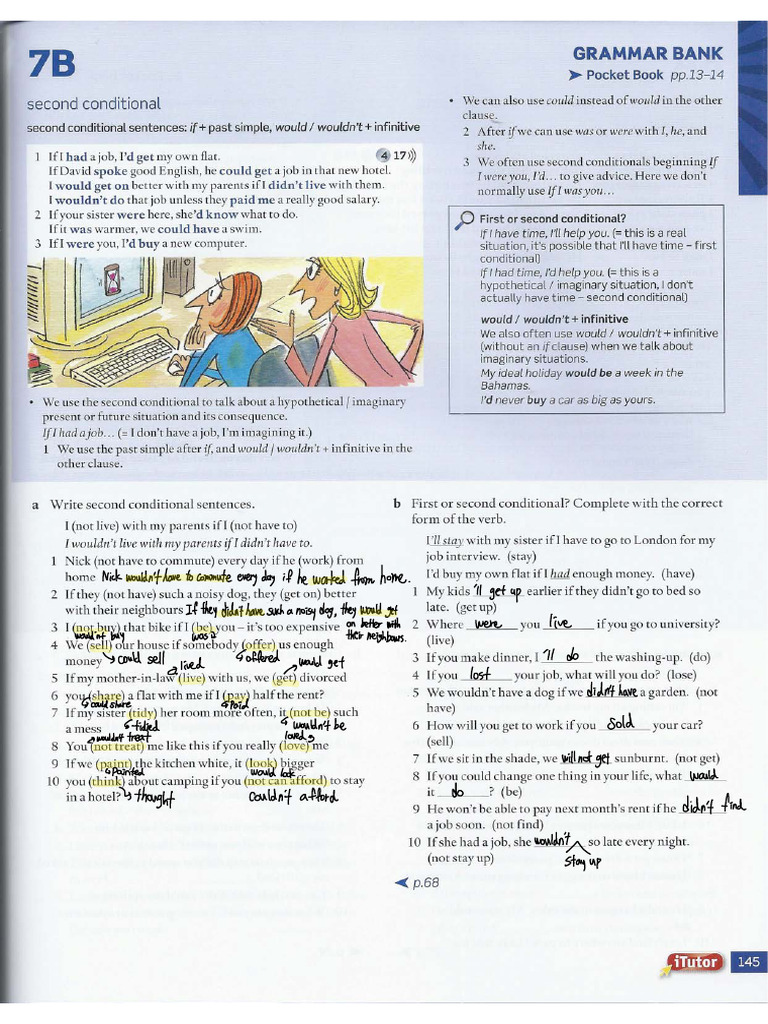 7B
GRAMMAR BANK
➤ Pocket Book pp.13–14
second conditional
second conditional sentences: if + past simple, would / wouldn't + infinitive
1 If I had a job, I'd get my own flat.
4 17
If David spoke good English, he could get a job in that new hotel.
I would get on better with my parents if I didn't live with them.
I wouldn't do that job unless they paid me a really good salary.
2 If your sister were here, she'd know what to do.
If it was warmer, we could have a swim.
3 If I were you, I'd buy a new computer.
• We use the second conditional to talk about a hypothetical / imaginary
present or future situation and its consequence.
If I had a job... (= I don't have a job, I'm imagining it.)
1 We use the past simple after if, and would / wouldn't + infinitive in the
other clause.
• We can also use could instead of would in the other
clause.
2 After if we can use was or were with I, he, and
she.
3 We often use second conditionals beginning If
I were you, I'd... to give advice. Here we don't
normally use If I was you...
First or second conditional?
If I have time, I'll help you. (= this is a real
situation, it's possible that I'll have time – first
conditional)
If I had time, I'd help you. (= this is a
hypothetical / imaginary situation, I don't
actually have time – second conditional)
would / wouldn't + infinitive
We also often use would / wouldn't + infinitive
(without an if clause) when we talk about
imaginary situations.
My ideal holiday would be a week in the
Bahamas.
I'd never buy a car as big as yours.
a Write second conditional sentences.
I (not live) with my parents if I (not have to)
I wouldn't live with my parents if I didn't have to.
1 Nick (not have to commute) every day if he (work) from
home Nick wouldn't have to commute every day if he worked from home.
2 If they (not have) such a noisy dog, they (get on) better
with their neighbours If they didn't have such a noisy dog, they would get
on better with
their neighbours.
3 I (not buy) that bike if I (be) you – it's too expensive
wouldn't buy was
4 We (sell) our house if somebody (offer) us enough
money could sell offered
lived would get
5 If my mother-in-law (live) with us, we (get) divorced
6 you (share) a flat with me if I (pay) half the rent?
could share paid
7 If my sister (tidy) her room more often, it (not be) such
a mess tidied wouldn't be
wouldn't treat loved
8 You (not treat) me like this if you really (love) me
9 If we (paint) the kitchen white, it (look) bigger
painted would look
10 you (think) about camping if you (not can afford) to stay
in a hotel? thought couldn't afford
b First or second conditional? Complete with the correct
form of the verb.
I'll stay with my sister if I have to go to London for my
job interview. (stay)
I'd buy my own flat if I had enough money. (have)
1 My kids 'll get up earlier if they didn't go to bed so
late. (get up)
2 Where were you live if you go to university?
(live)
3 If you make dinner, I 'll do the washing-up. (do)
4 If you lost your job, what will you do? (lose)
5 We wouldn't have a dog if we didn't have a garden. (not
have)
6 How will you get to work if you sold your car?
(sell)
7 If we sit in the shade, we will not get sunburnt. (not get)
8 If you could change one thing in your life, what would
it do ? (be)
9 He won't be able to pay next month's rent if he didn't find
a job soon. (not find)
10 If she had a job, she wouldn't stay up so late every night.
(not stay up)
p.68
iTutor
145